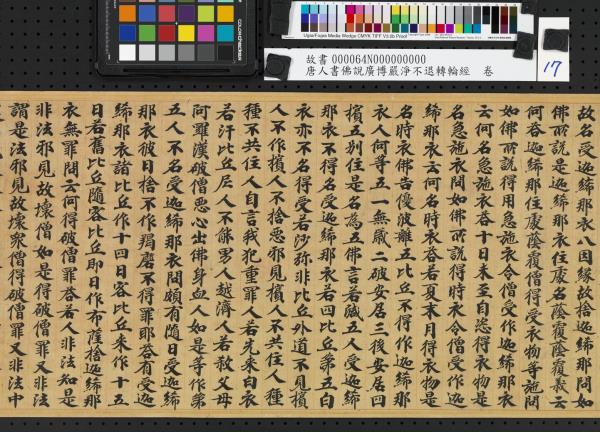 UgraFogra Media Wedge CMYK TIFF V3.0b Proof
故書 000064N000000000
唐人書佛說廣博嚴淨不退轉輪經 卷
17
故名受迦絺那衣八因緣故捨迦絺那問如
佛所說是迦絺那衣住處名蔭覆蔭覆義云
何答迦絺那住處蔭覆僧得受衣物等施問
如佛所說得用急施衣令僧受作迦絺那衣
云何名急施衣答十日未至自恣得衣物是
名急施衣問如佛所說得時衣令僧受作迦
絺那衣云何名時衣答若夏末月得衣物是
名時衣佛告優波離五比丘不得作迦絺那
衣人何等五一無歲二破安居三後安居四
擯五別住是名為五佛言若歲五人受迦絺
那不得名受迦絺那衣若四比丘第五白
衣亦不名得受若沙弥非比丘外道不見擯
人不作擯人不捨惡邪見擯人不共住人種
種不共住人自言我犯重罪人若先来白衣
若汙比丘尼人不能男人越濟人若煞父母
阿羅漢破僧惡心出佛身血人如是等作第
五人不名受迦絺那衣問頗有随日受迦絺
那衣彼日捨不作羯磨不得罪耶答有受迦
絺那衣諸比丘作十四日客比丘来作十五
日若舊比丘随客比丘即日作布薩捨迦絺那
衣無罪問云何得破僧罪答若人非法知是
非法邪見故壞僧如是得破僧罪又非法
謂是法邪見故壞衆僧得破僧罪又非法中